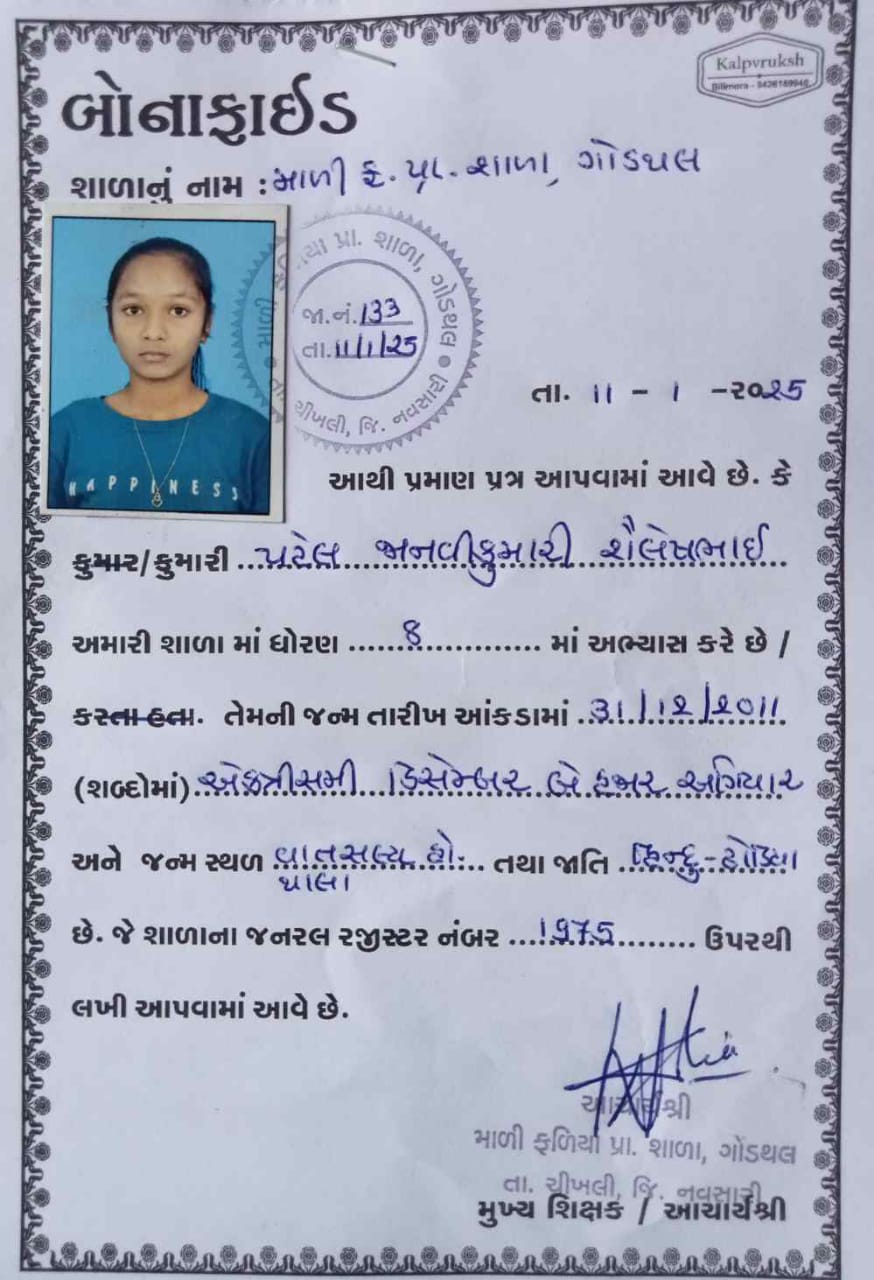 Kalpvruksh
Bilimora - 9426189946
બોનાફાઈડ
શાળાનું નામ : માળી ફ. પ્રા. શાળા, ગોડથલ
પ્રા. શાળા, ગોડથલ
જા.નં. 133
તા. 11/1/25
ચીખલી, જિ. નવસારી
HAPPINESS
તા. 11 - 1 - ૨૦25
આથી પ્રમાણ પત્ર આપવામાં આવે છે. કે
કુમાર/કુમારી ...પટેલ જાનવીકુમારી શૈલેષભાઈ...
અમારી શાળા માં ધોરણ ......8...................... માં અભ્યાસ કરે છે /
કરતા હતા. તેમની જન્મ તારીખ આંકડામાં ..31/12/2011...
(શબ્દોમાં)..એકત્રીસમી ડિસેમ્બર બે હજાર અગિયાર
અને જન્મ સ્થળ વાત્સલ્ય હો.... તથા જાતિ ...હિન્દુ-ઢોડિયા
થાલા
છે. જે શાળાના જનરલ રજીસ્ટર નંબર ...1975......... ઉપરથી
લખી આપવામાં આવે છે.
આચાર્યશ્રી
માળી ફળિયા પ્રા. શાળા, ગોંડથલ
તા. ચીખલી, જિ. નવસારી
મુખ્ય શિક્ષક / આચાર્યશ્રી